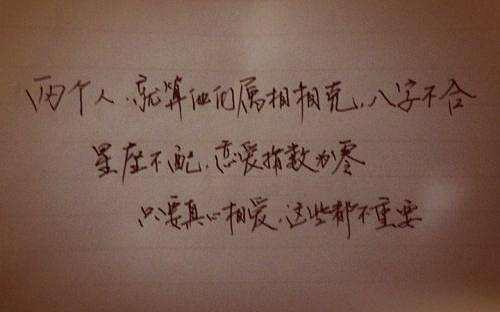 两个人.就算他们属相相克.八字不合
星座不配.恋爱指数为零
只要真心相爱.这些都不重要